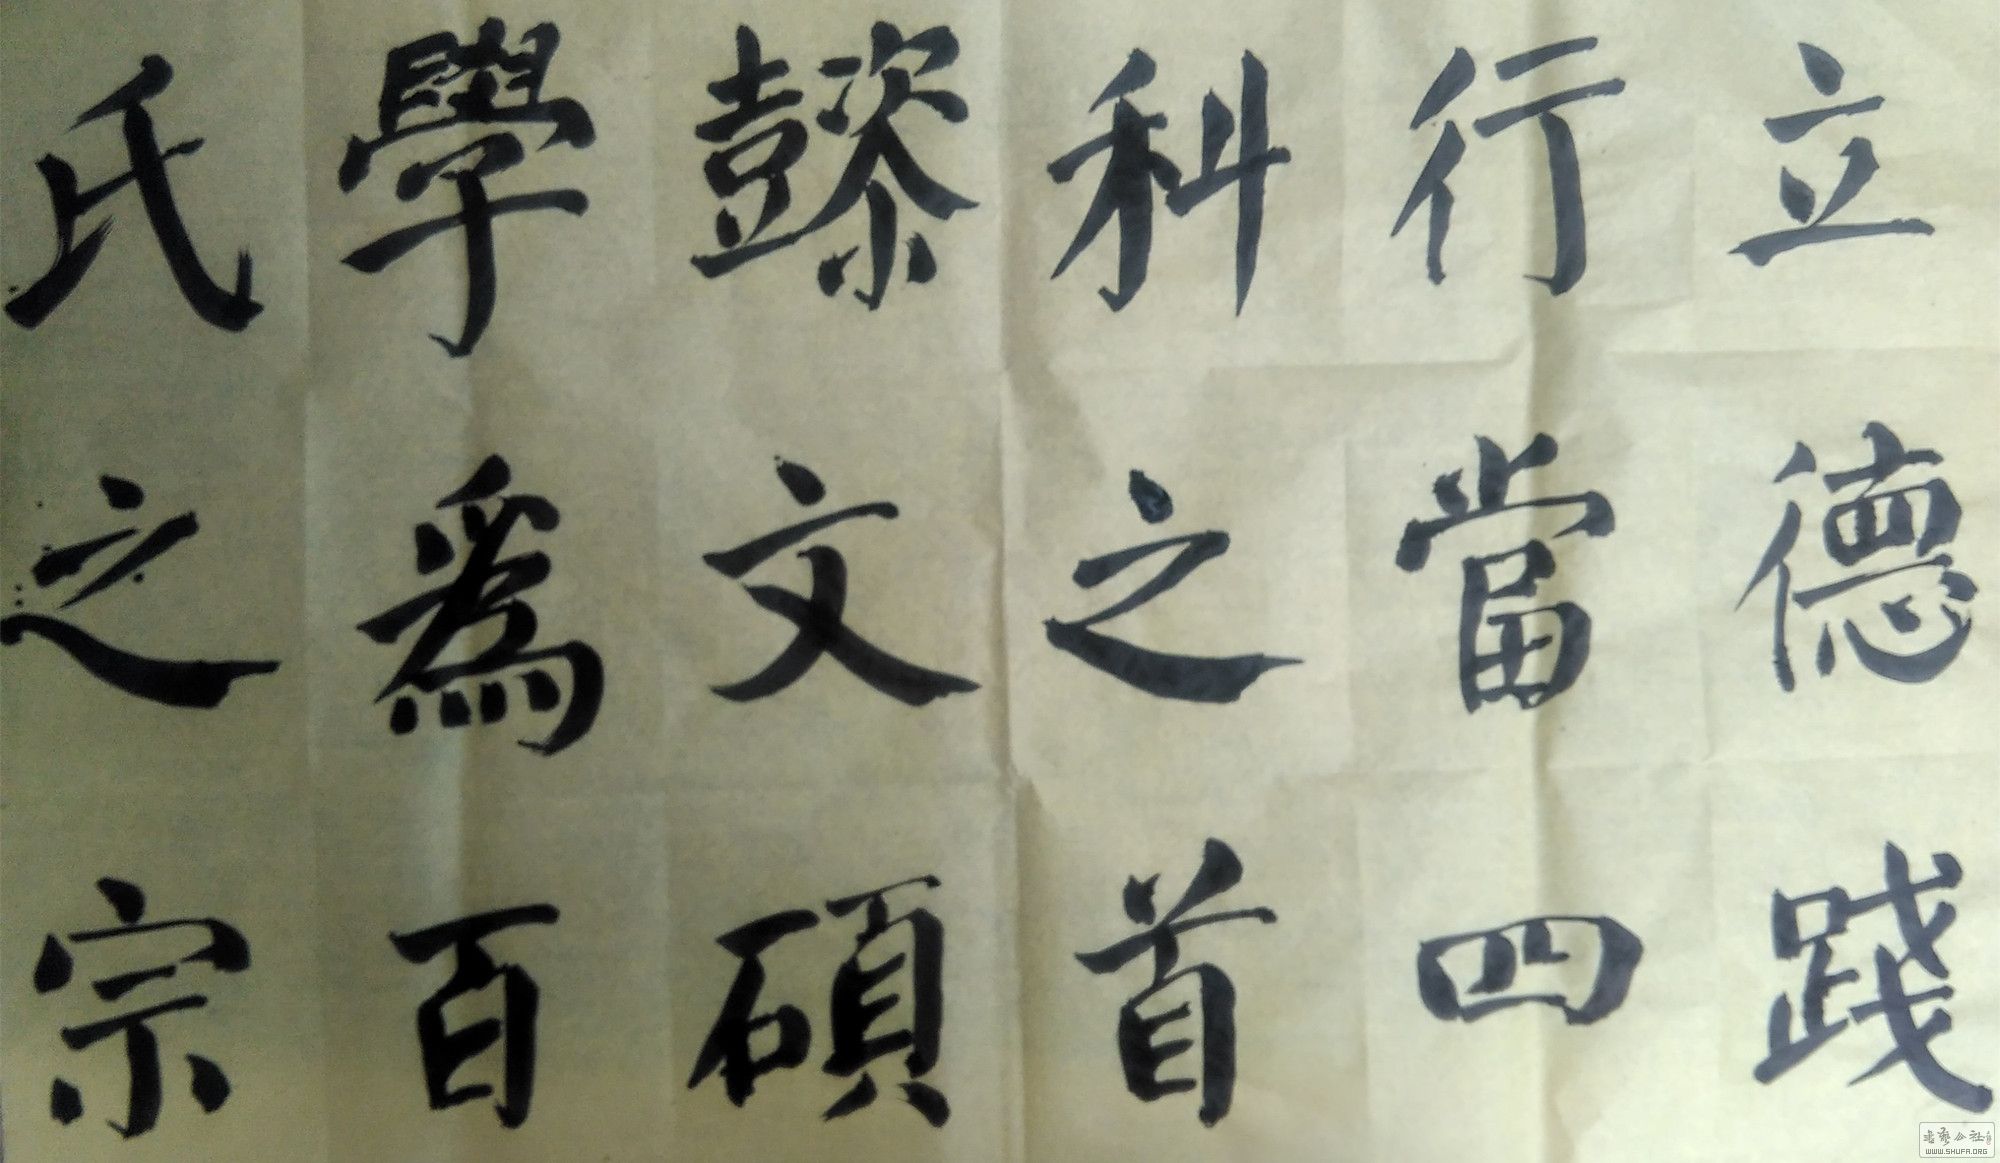 立德踐
行當四
科之首
懿文碩
學爲百
氏之宗
书艺公社
WWW.SHUFA.ORG